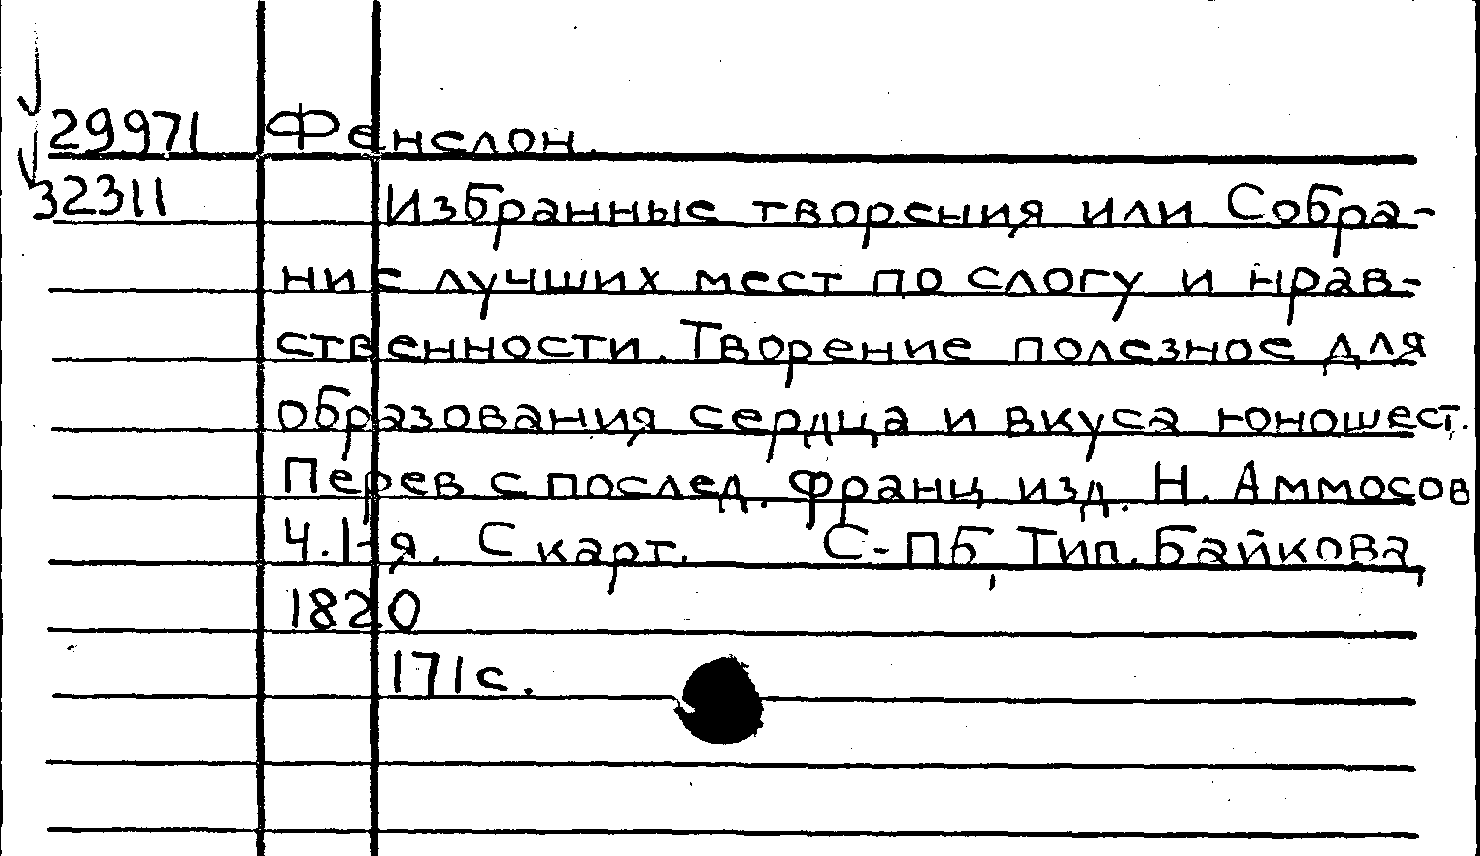 29971 Фенелон.
32311 Избранные творения или Собра-
ние лучших мест по слогу и нрав-
ственности. Творение полезное для
образования сердца и вкуса юношест.
Перев с послед. франц изд. Н. Аммосов
Ч. I-я. С карт. С-ПБ, Тип. Байкова,
1820
171 с.